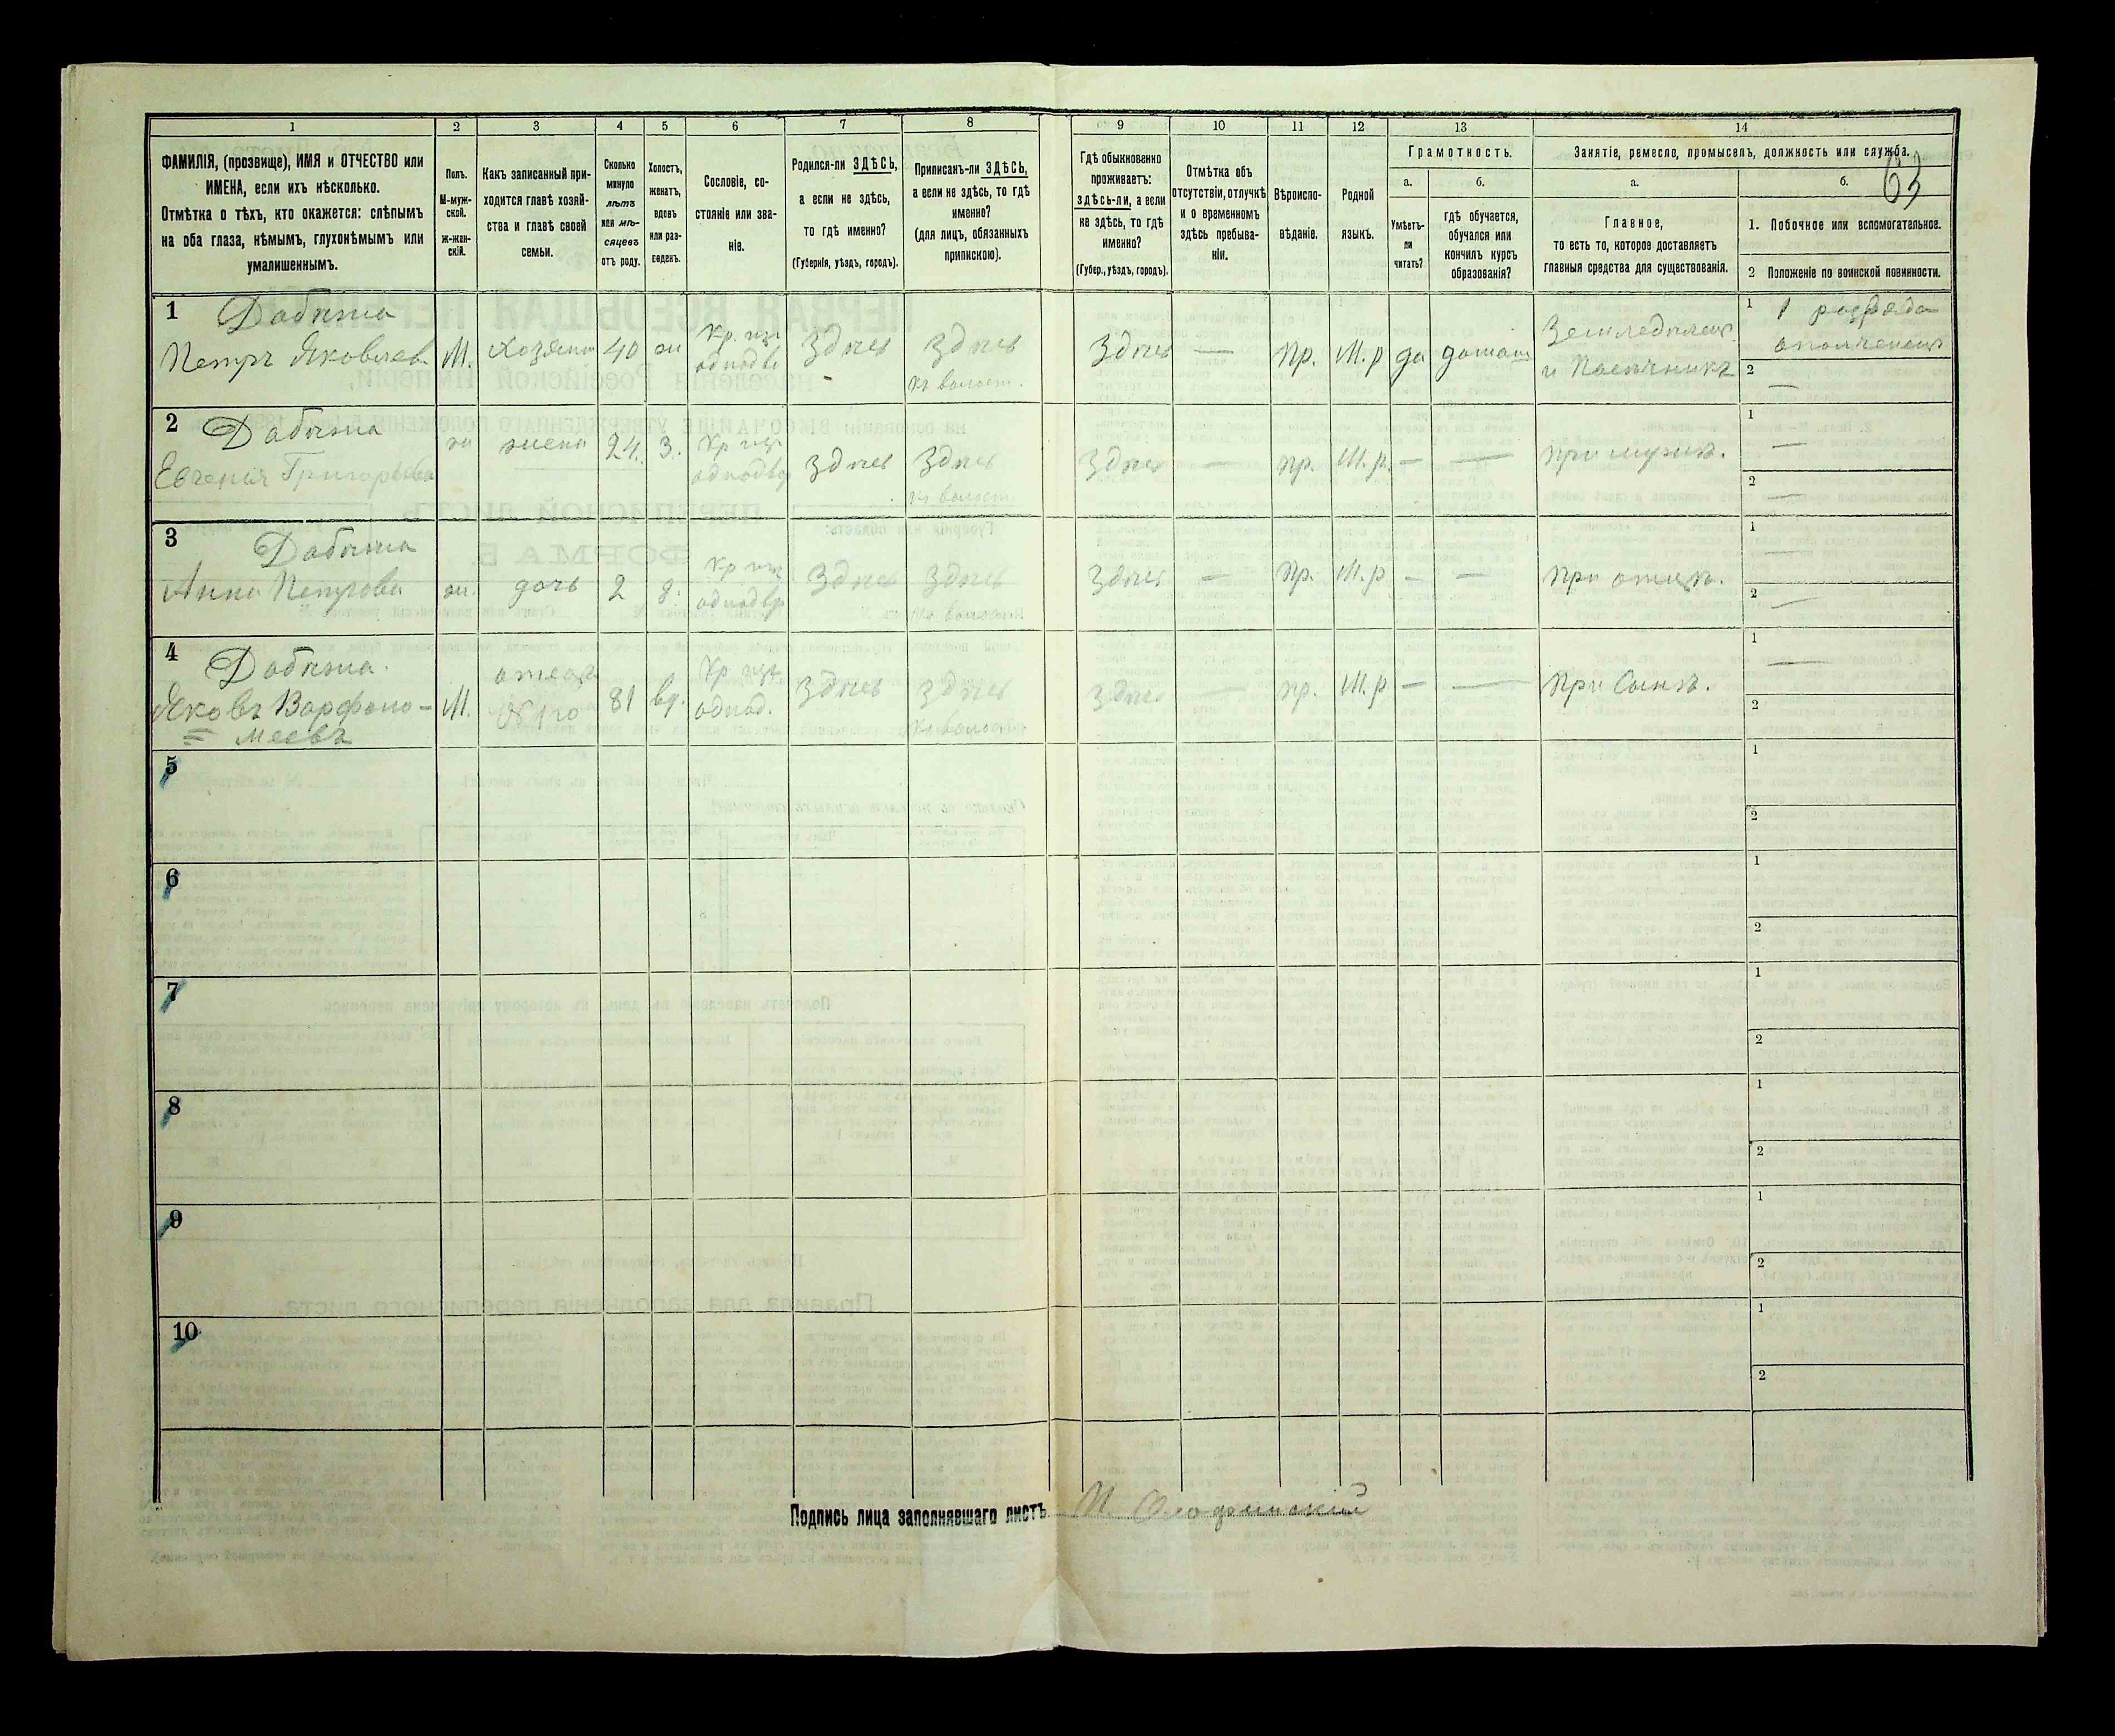 63
1 2 3 4 5 6 7 8 9 10 11 12 13 14
ФАМИЛІЯ, (прозвище), ИМЯ и ОТЧЕСТВО или
ИМЕНА, если ихъ нѣсколько.
Отмѣтка о тѣхъ, кто окажется: слѣпымъ
на оба глаза, нѣмымъ, глухонѣмымъ или
умалишеннымъ.
Полъ.
М-муж-
ской.
ж-жен-
скій.
Какъ записанный при-
ходится главѣ хозяй-
ства и главѣ своей
семьи.
Сколько
минуло
лѣтъ
или мѣ-
сяцевъ
отъ роду.
Холостъ,
женатъ,
вдовъ
или раз-
веденъ.
Сословіе, со-
стояніе или зва-
ніе.
Родился-ли ЗДѢСЬ,
а если не здѣсь,
то гдѣ именно?
(Губернія, уѣздъ, городъ).
Приписанъ-ли ЗДѢСЬ,
а если не здѣсь, то гдѣ
именно?
(для лицъ, обязанныхъ
припискою).
Гдѣ обыкновенно
проживаетъ:
здѣсь-ли, а если
не здѣсь, то гдѣ
именно?
(Губер., уѣздъ, городъ).
Отмѣтка объ
отсутствіи, отлучкѣ
и о временномъ
здѣсь пребыва-
ніи.
Вѣроиспо-
вѣданіе.
Родной
языкъ.
Грамотность.
а.
Умѣетъ-
ли
читать?
б.
гдѣ обучается,
обучался или
кончилъ курсъ
образованія?
Занятіе, ремесло, промыселъ, должность или служба.
а.
Главное,
то есть то, которое доставляетъ
главныя средства для существованія.
б.
1. Побочное или вспомогательное.
2 Положеніе по воинской повинности.
1 Дабыжа
Петръ Яковлев
М. Хозяинъ 40 ж
одподв
Здѣсь Здѣсь
Здѣсь — Пр. М.р да
Земледѣлец
и Пасѣчникъ
1 1 разряда
ополченецъ
2 —
2 Дабыжа
Евгенія Григорьева
ж жена 24. З.
одподв
Здѣсь Здѣсь
Здѣсь — пр. М.р. — — при мужѣ.
1 —
2 —
3 Дабыжа
Анна Петрова
ж. дочь 2 д.
одподв
Здѣсь Здѣсь
Здѣсь — Пр. М.р — — при отцѣ.
1 —
2 —
4 Дабыжа.
Яковъ Варфоло-
меевъ
М. отецъ
81 вд.
однод.
Здѣсь Здѣсь
Здѣсь — пр. М.р — — При Сынѣ.
1 —
2
5 1
2
6 1
2
7 1
2
8 1
2
9 1
2
10 1
2
Подпись лица заполнявшаго листъ